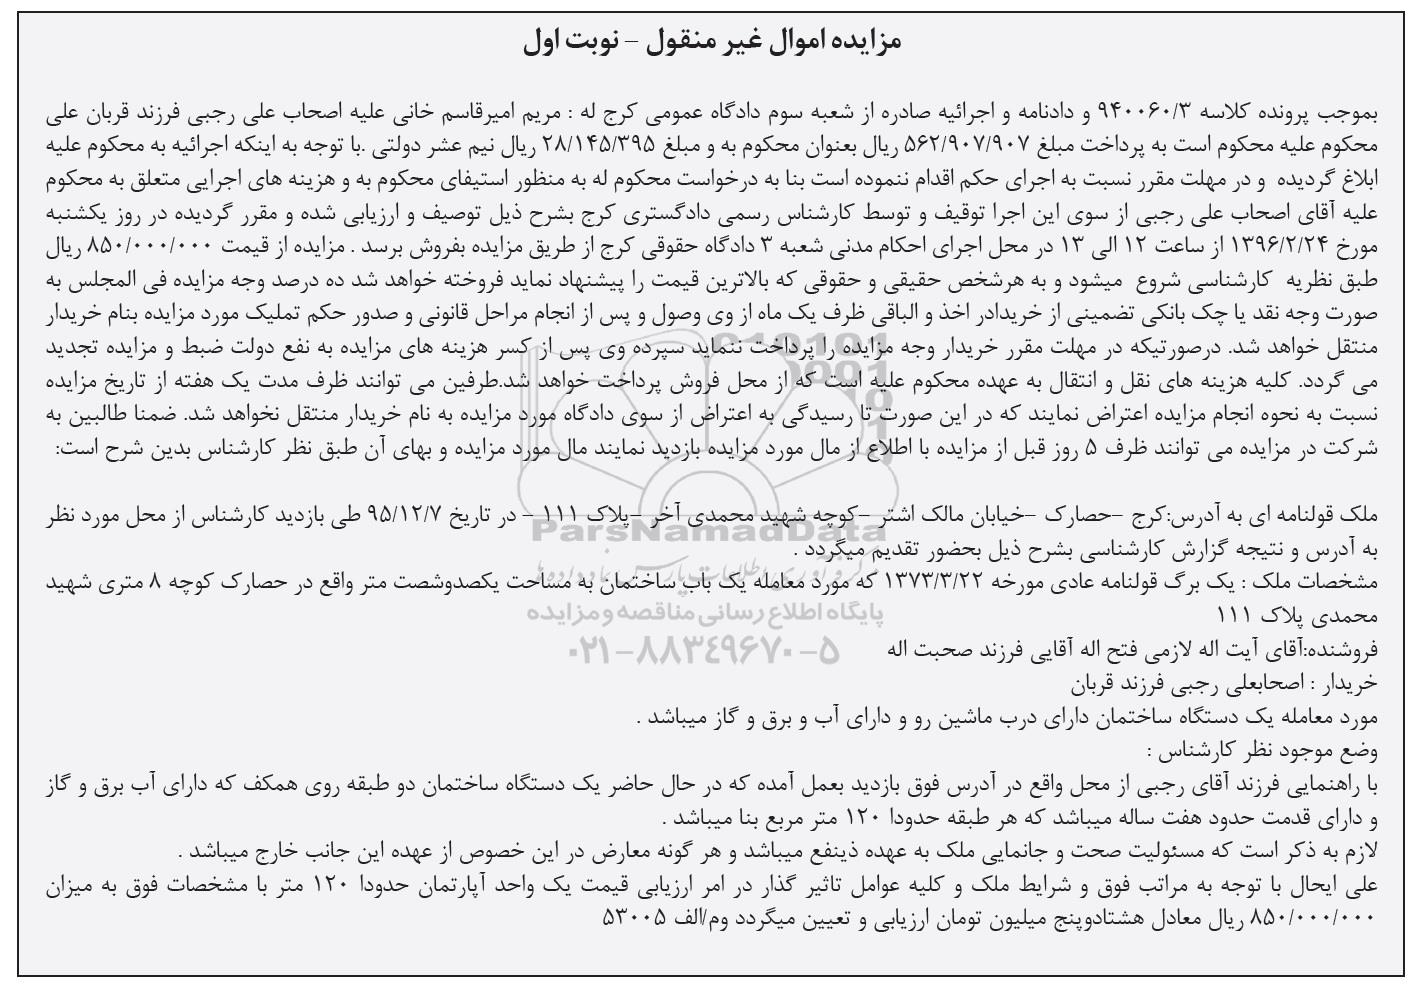 مزایده اموال غیر منقول – نوبت اول
بموجب پرونده کلاسه ۹۴۰۰۶۰/۳ و دادنامه و اجرائیه صادره از شعبه سوم دادگاه عمومی کرج له : مریم امیرقاسم خانی علیه اصحاب علی رجبی فرزند قربان علی
محکوم علیه محکوم است به پرداخت مبلغ ۵۶۲/۹۰۷/۹۰۷ ریال بعنوان محکوم به و مبلغ ۲۸/۱۴۵/۳۹۵ ریال نیم عشر دولتی .با توجه به اینکه اجرائیه به محکوم علیه
ابلاغ گردیده و در مهلت مقرر نسبت به اجرای حکم اقدام ننموده است بنا به درخواست محکوم له به منظور استیفای محکوم به و هزینه های اجرایی متعلق به محکوم
علیه آقای اصحاب علی رجبی از سوی این اجرا توقیف و توسط کارشناس رسمی دادگستری کرج بشرح ذیل توصیف و ارزیابی شده و مقرر گردیده در روز یکشنبه
مورخ ۱۳۹۶/۲/۲۴ از ساعت ۱۲ الی ۱۳ در محل اجرای احکام مدنی شعبه ۳ دادگاه حقوقی کرج از طریق مزایده بفروش برسد . مزایده از قیمت ۸۵۰/۰۰۰/۰۰۰ ریال
طبق نظریه کارشناسی شروع میشود و به هرشخص حقیقی و حقوقی که بالاترین قیمت را پیشنهاد نماید فروخته خواهد شد ده درصد وجه مزایده فی المجلس به
صورت وجه نقد یا چک بانکی تضمینی از خریدادر اخذ و الباقی ظرف یک ماه از وی وصول و پس از انجام مراحل قانونی و صدور حکم تملیک مورد مزایده بنام خریدار
منتقل خواهد شد. درصورتیکه در مهلت مقرر خریدار وجه مزایده را پرداخت ننماید سپرده وی پس از کسر هزینه های مزایده به نفع دولت ضبط و مزایده تجدید
می گردد. کلیه هزینه های نقل و انتقال به عهده محکوم علیه است که از محل فروش پرداخت خواهد شد.طرفین می توانند ظرف مدت یک هفته از تاریخ مزایده
نسبت به نحوه انجام مزایده اعتراض نمایند که در این صورت تا رسیدگی به اعتراض از سوی دادگاه مورد مزایده به نام خریدار منتقل نخواهد شد. ضمنا طالبین به
شرکت در مزایده می توانند ظرف ۵ روز قبل از مزایده با اطلاع از مال مورد مزایده بازدید نمایند مال مورد مزایده و بهای آن طبق نظر کارشناس بدین شرح است:
ملک قولنامه ای به آدرس:کرج –حصارک –خیابان مالک اشتر –کوچه شهید محمدی آخر –پلاک ۱۱۱ – در تاریخ ۹۵/۱۲/۷ طی بازدید کارشناس از محل مورد نظر
ParsNamadData
به آدرس و نتیجه گزارش کارشناسی بشرح ذیل بحضور تقدیم میگردد .
مشخصات ملک : یک برگ قولنامه عادی مورخه ۱۳۷۳/۳/۲۲ که مورد معامله یک باب ساختمان به مساحت یکصدوشصت متر واقع در حصارک کوچه ۸ متری شهید
محمدی پلاک ۱۱۱
پایگاه اطلاع رسانی مناقصه و مزایده
فروشنده:آقای آیت اله لازمی فتح اله آقایی فرزند صحبت اله
۰۲۱–۸۸۳۴۹۶۷۰–۵
خریدار : اصحابعلی رجبی فرزند قربان
مورد معامله یک دستگاه ساختمان دارای درب ماشین رو و دارای آب و برق و گاز میباشد .
وضع موجود نظر کارشناس :
با راهنمایی فرزند آقای رجبی از محل واقع در آدرس فوق بازدید بعمل آمده که در حال حاضر یک دستگاه ساختمان دو طبقه روی همکف که دارای آب برق و گاز
و دارای قدمت حدود هفت ساله میباشد که هر طبقه حدودا ۱۲۰ متر مربع بنا میباشد .
لازم به ذکر است که مسئولیت صحت و جانمایی ملک به عهده ذینفع میباشد و هر گونه معارض در این خصوص از عهده این جانب خارج میباشد .
علی ایحال با توجه به مراتب فوق و شرایط ملک و کلیه عوامل تاثیر گذار در امر ارزیابی قیمت یک واحد آپارتمان حدودا ۱۲۰ متر با مشخصات فوق به میزان
۸۵۰/۰۰۰/۰۰۰ ریال معادل هشتادوپنج میلیون تومان ارزیابی و تعیین میگردد وم/الف ۵۳۰۰۵